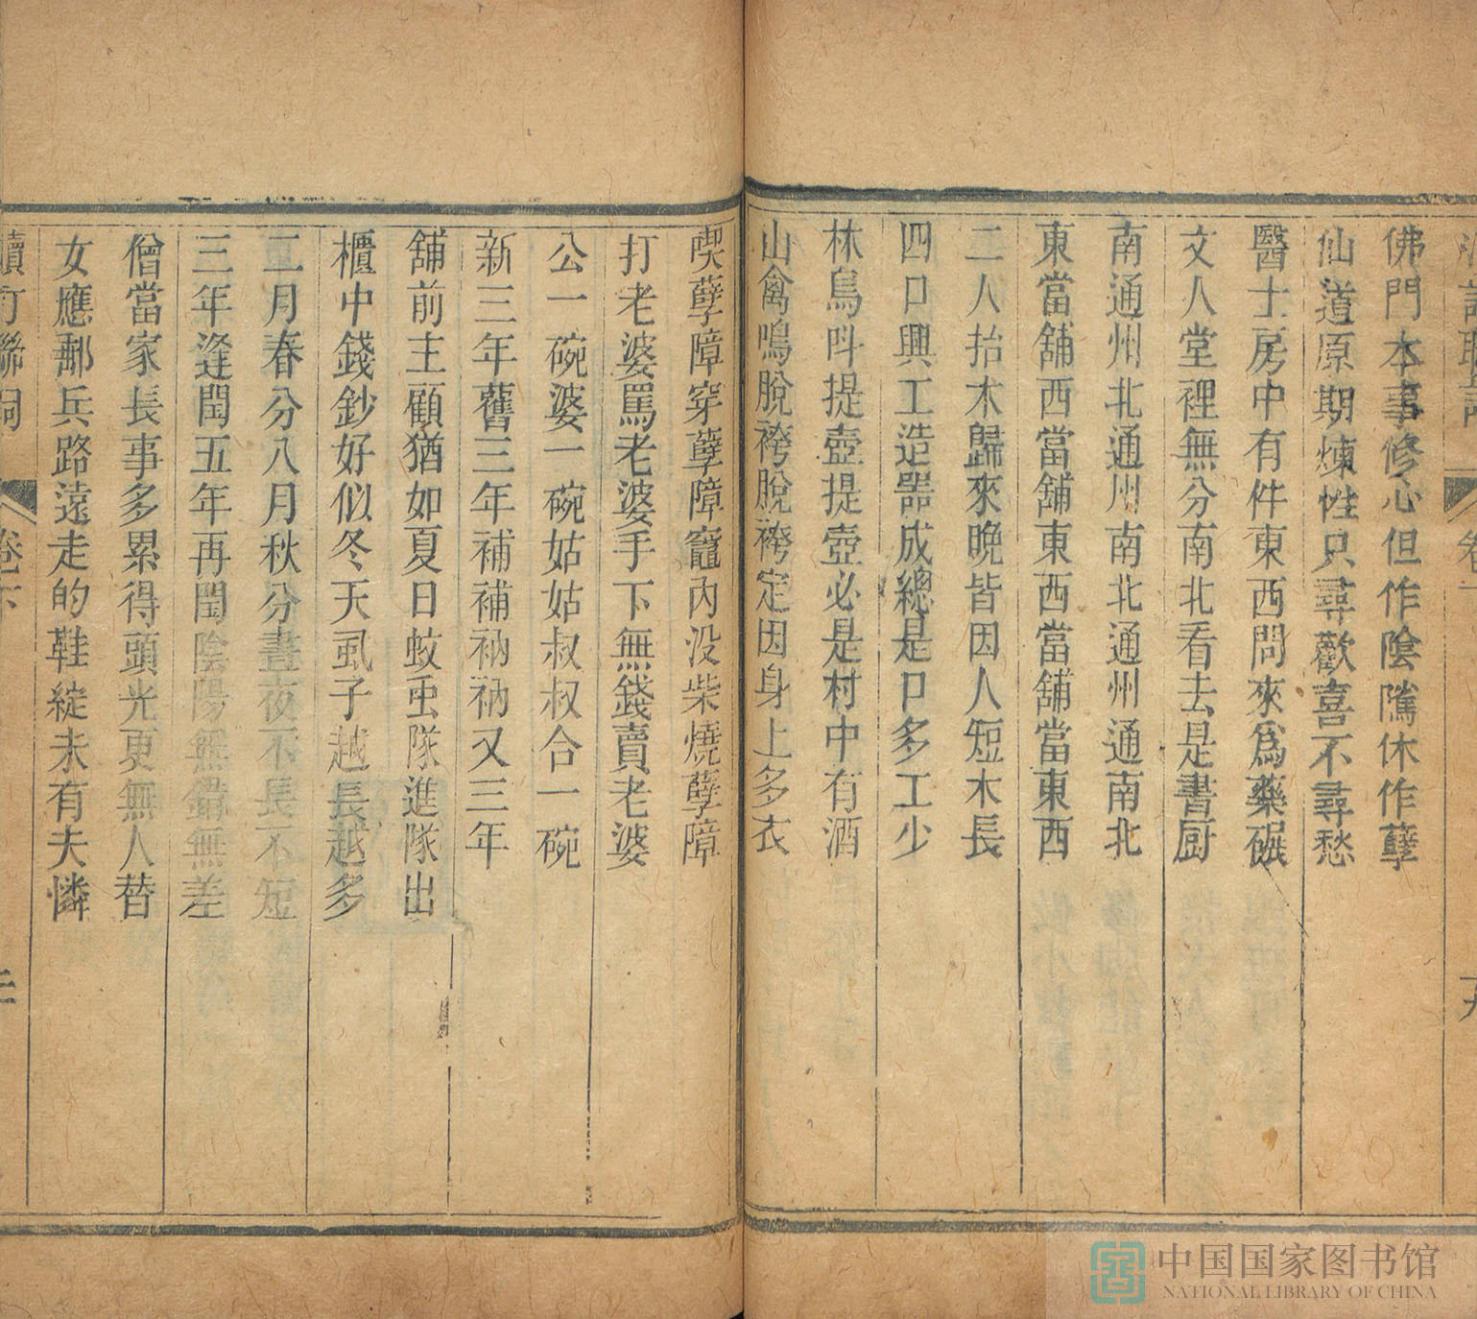 佛門本事修心但作陰隲休作孽
仙道原期煉性只尋歡喜不尋愁
醫士房中有件東西問來爲藥碾
文人堂裡無分南北看去是書厨
南通州北通州南北通州通南北
東當舖西當舖東西當舖當東西
二人抬木歸來晚皆因人短木長
四口興工造器成總是口多工少
林鳥呌提壺提壺必是村中有酒
山禽鳴脫袴脫袴定因身上多衣
喫孽障穿孽障竈內没柴燒孽障
打老婆罵老婆手下無錢賣老婆
公一碗婆一碗姑姑叔叔合一碗
新三年舊三年補補衲衲又三年
舖前主顧猶如夏日蚊䖝隊進隊出
櫃中錢鈔好似冬天虱子越長越多
二月春分八月秋分晝夜不長不短
三年逢閏五年再閏陰陽無錯無差
僧當家長事多累得頭光更無人替
女應鄰兵路遠走的鞋綻未有夫憐
續訂聯詞
卷下
中国国家图书馆
NATIONAL LIBRARY OF CHINA